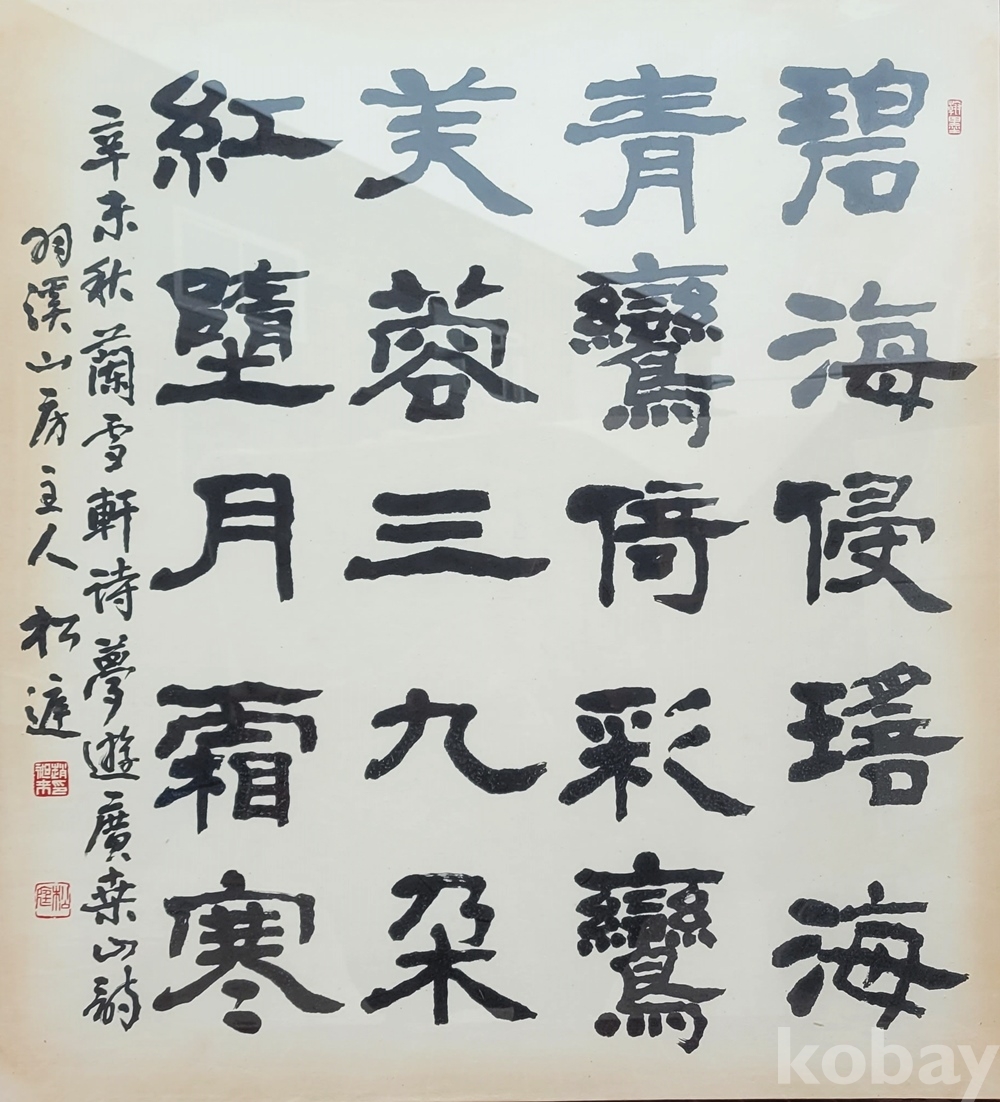 碧海侵瑤海
青鸞倚彩鸞
芙蓉三九朶
紅墮月霜寒
辛未秋蘭雪軒詩夢遊廣桑山詩
羽溪山房主人 松庭
松庭
kobay